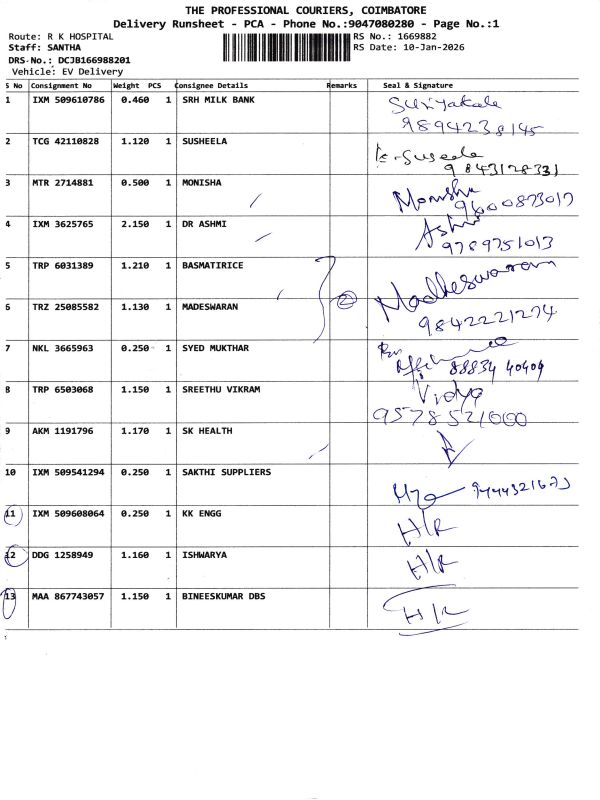 THE PROFESSIONAL COURIERS, COIMBATORE
Delivery Runsheet - PCA - Phone No.:9047080280 - Page No.:1
Route: R K HOSPITAL
RS No.: 1669882
Staff: SANTHA
RS Date: 10-Jan-2026
DRS No.: DCJB166988201
Vehicle: EV Delivery
S No Consignment No Weight PCS Consignee Details Remarks Seal & Signature
1 IXM 509610786 0.460 1 SRH MILK BANK Suriyakala
9894238145
2 TCG 42110828 1.120 1 SUSHEELA K. Suseela
9843128331
3 MTR 2714881 0.500 1 MONISHA Monisha
9600873017
4 IXM 3625765 2.150 1 DR ASHMI Ashmi
9789751013
5 TRP 6031389 1.210 1 BASMATIRICE Madheswaran
6 TRZ 25085582 1.130 1 MADESWARAN 2 9842221274
7 NKL 3665963 0.250 1 SYED MUKTHAR
88834 40404
8 TRP 6503068 1.150 1 SREETHU VIKRAM Vidya
9578521000
9 AKM 1191796 1.170 1 SK HEALTH
10 IXM 509541294 0.250 1 SAKTHI SUPPLIERS
11 IXM 509608064 0.250 1 KK ENGG H/R
12 DDG 1258949 1.160 1 ISHWARYA H/R
13 MAA 867743057 1.150 1 BINEESKUMAR DBS H/R